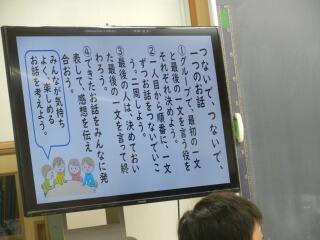 つないで、つないで、
一つのお話
①グループで、最初の一文
と最後の一文を言う役を
それぞれ決めよう。
②一人目から順番に、一文
ずつお話をつないでいこ
う。二周しよう。
③最後の人は、決めておい
た最後の一文を言って終
わろう。
④できたお話をみんなに発
表して、感想を伝え
合おう。
みんなが気持ち
よく、楽しめる
お話を考えよう。